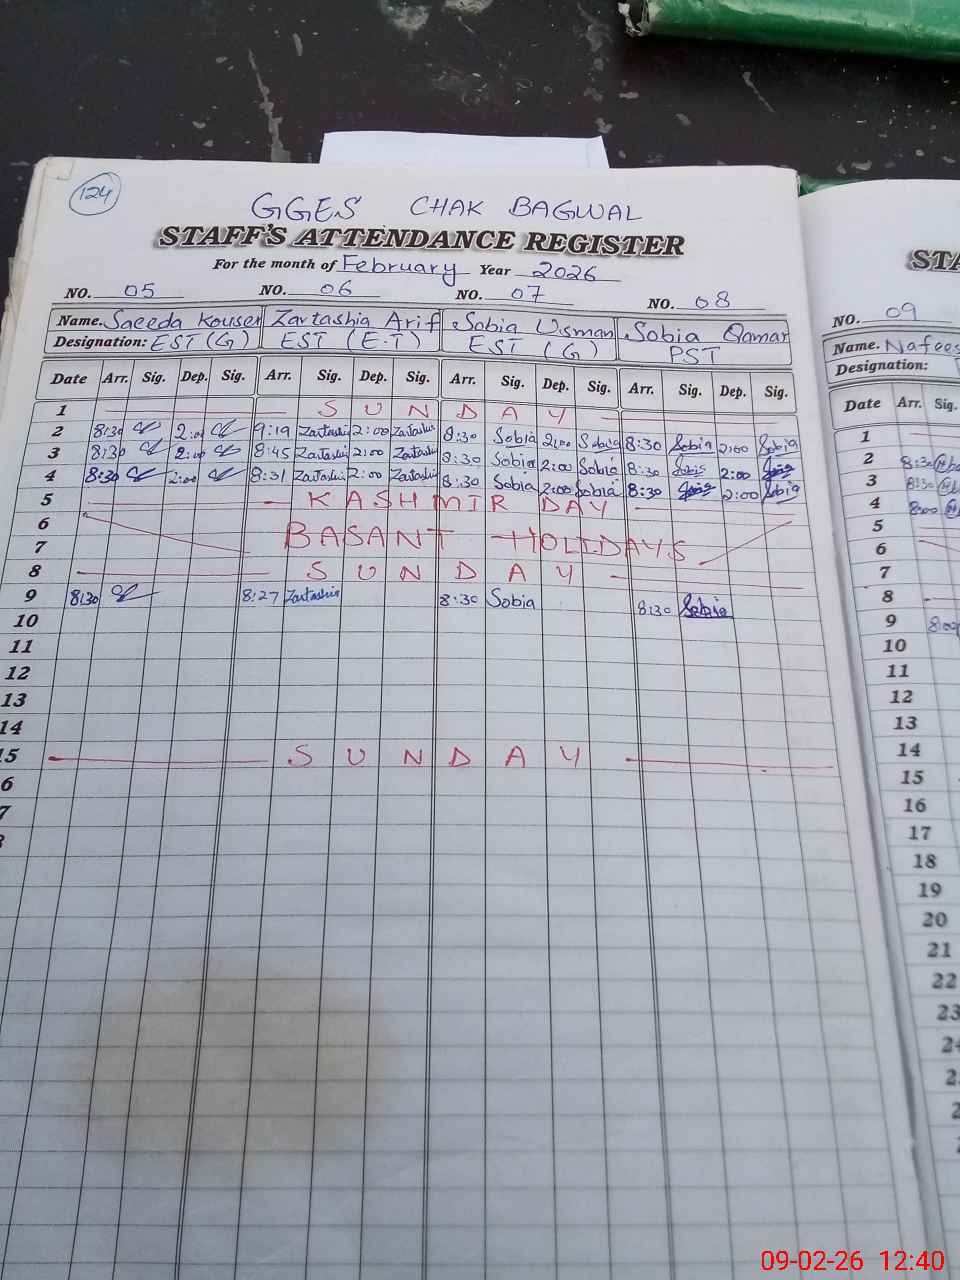 124
GGES CHAK BAGWAL
STAFF'S ATTENDANCE REGISTER
For the month of February Year 2026
NO. 05 NO. 06 NO. 07 NO. 08
Name. Saeeda Kouser Zartashia Arif Sobia Usman Sobia Qamar
Designation: EST (G) EST (E.T) EST (G) PST
Date Arr. Sig. Dep. Sig. Arr. Sig. Dep. Sig. Arr. Sig. Dep. Sig. Arr. Sig. Dep. Sig.
1 SUNDAY
2 8:30 2:00 9:19 Zartashia 2:00 Zartashia 8:30 Sobia 2:00 Sobia 8:30 Sobia 2:00 Sobia
3 8:30 2:00 8:45 Zartashia 2:00 Zartashia 8:30 Sobia 2:00 Sobia 8:30 Sobia 2:00
4 8:30 2:00 8:31 Zartashia 2:00 Zartashia 8:30 Sobia 2:00 Sobia 8:30 2:00 Sobia
5 KASHMIR DAY
6
7 BASANT HOLIDAYS
8 SUNDAY
9 8:30 8:27 Zartashia 8:30 Sobia 8:30 Sobia
10
11
12
13
14
15 SUNDAY
6
7
STA
NO. 09
Name. Nafees
Designation:
Date Arr. Sig.
1
2 8:30
3 8:30
4 8:00
5
6
7
8
9 8:00
10
11
12
13
14
15
16
17
18
19
20
21
22
23
09-02-26 12:40